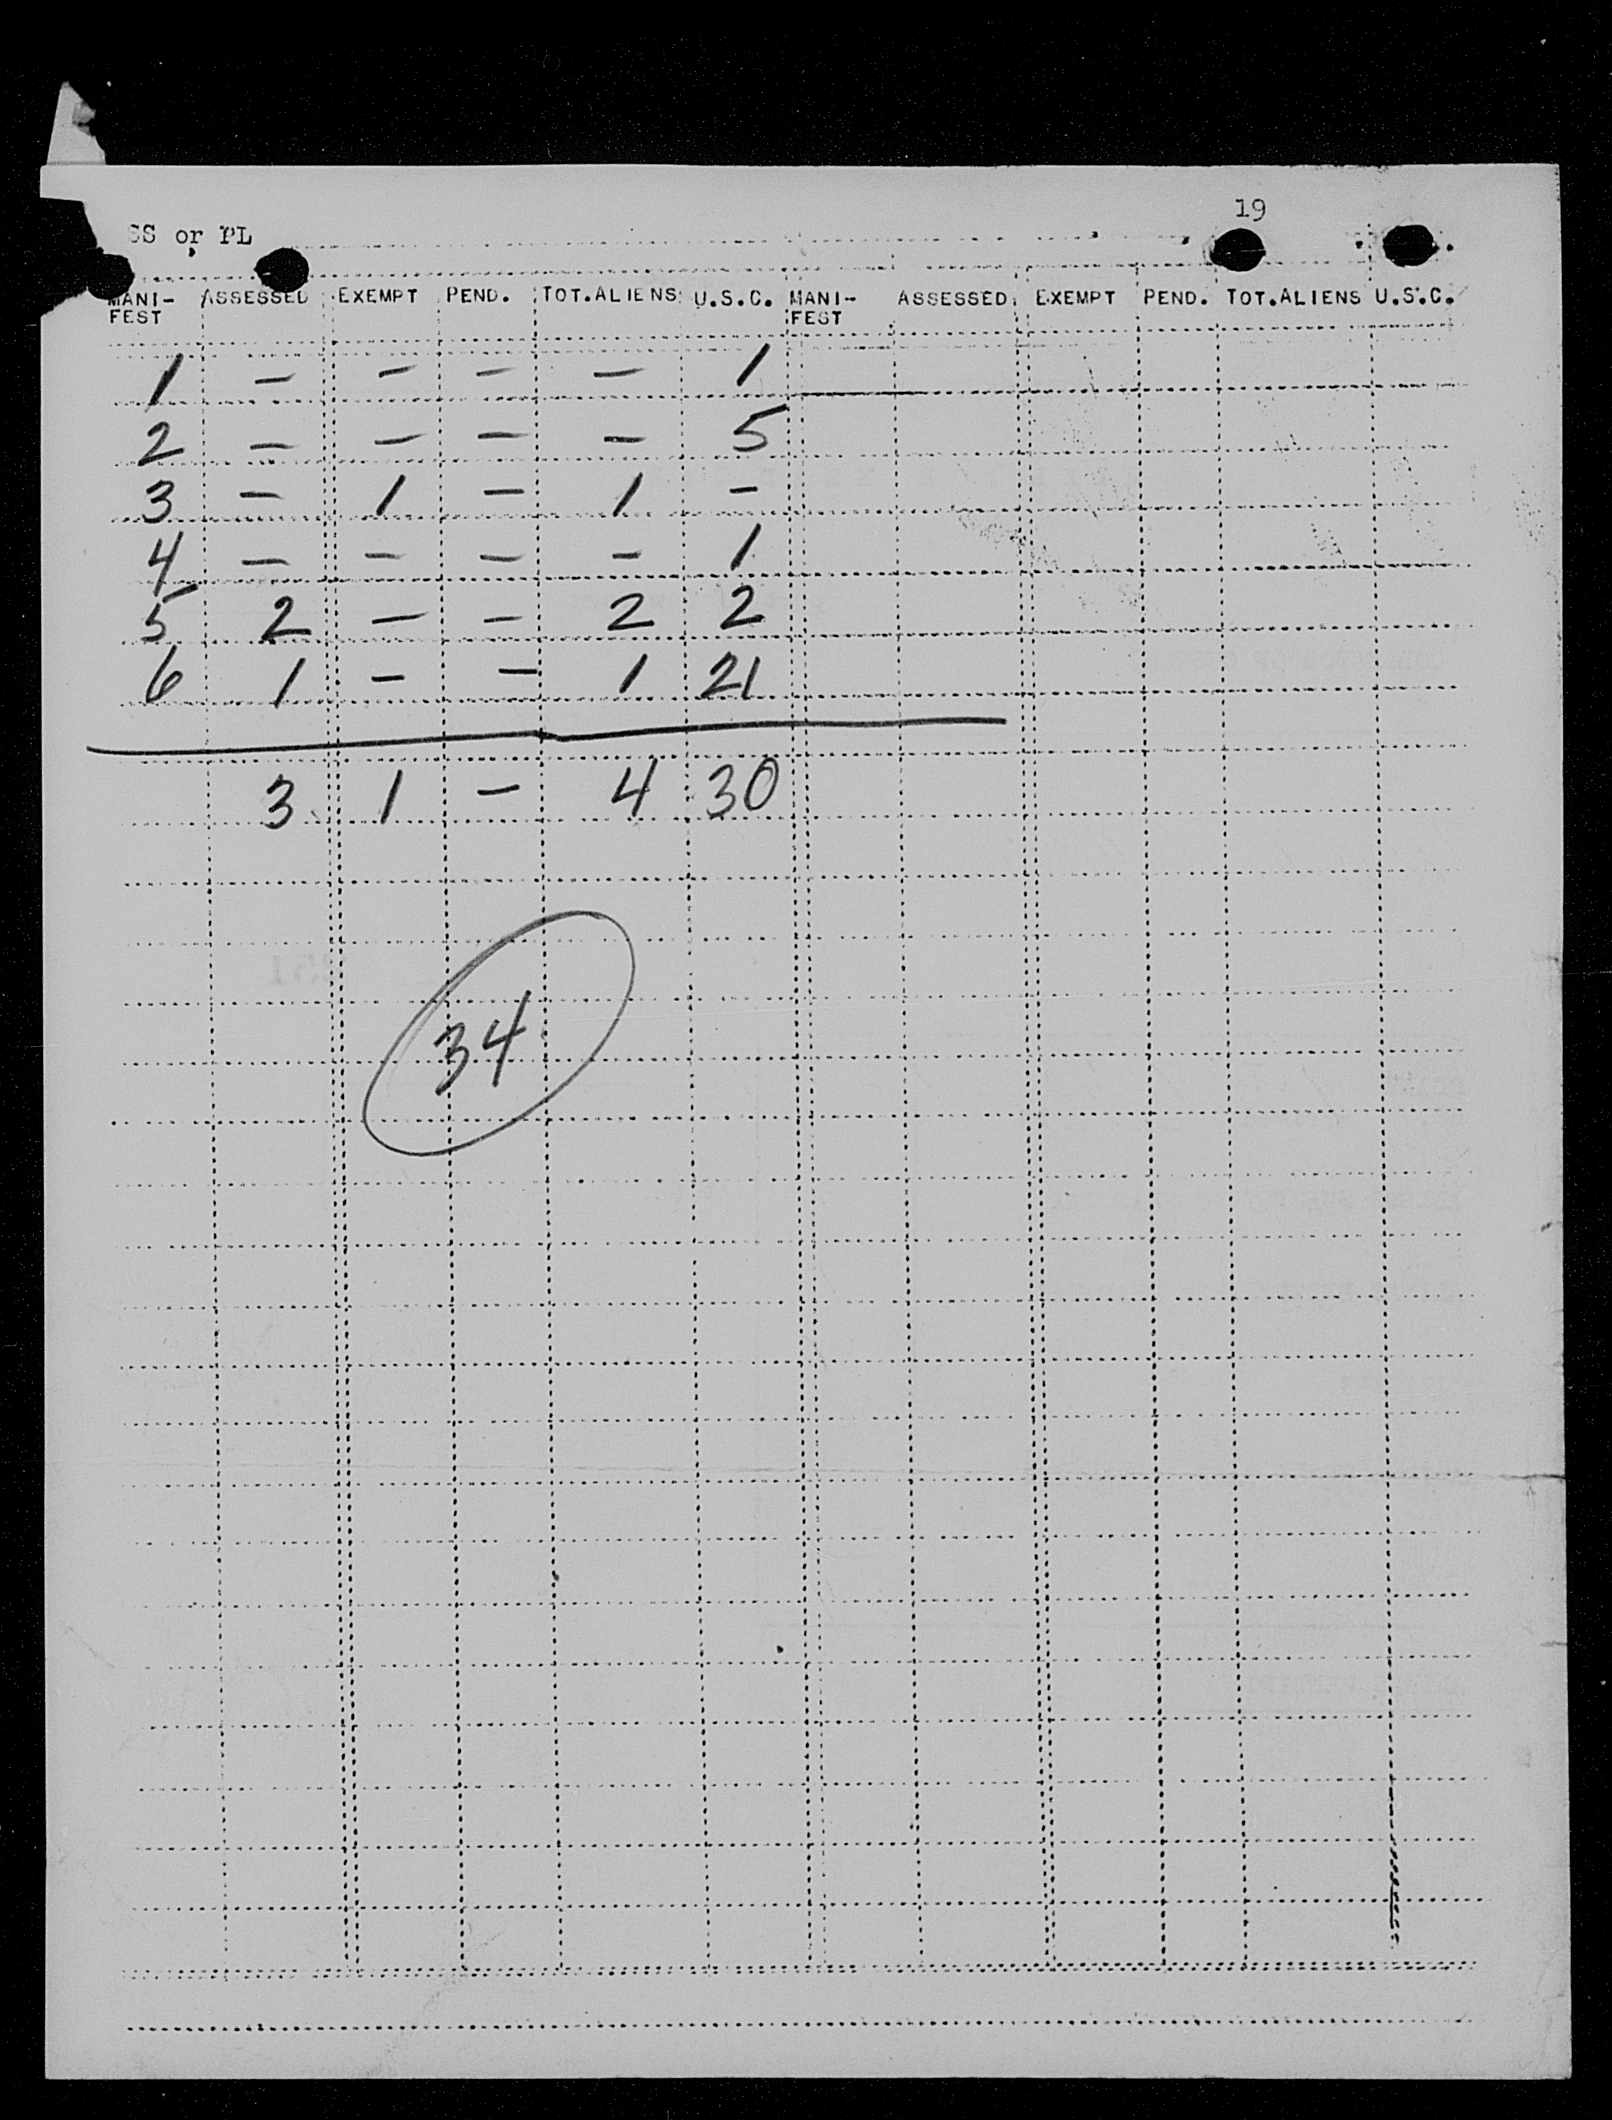 SS or PL 19
MANI-FEST ASSESSED EXEMPT PEND. TOT.ALIENS U.S.C. MANI-FEST ASSESSED EXEMPT PEND. TOT.ALIENS U.S.C.
1 - - - - 1
2 - - - - 5
3 - 1 - 1 -
4 - - - - 1
5 2 - - 2 2
6 1 - - 1 21
3 1 - 4 30
34